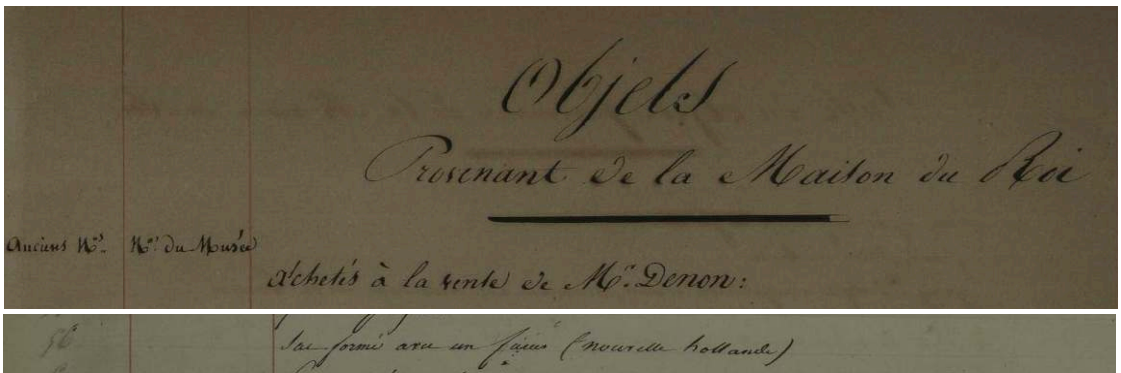 Objets
Provenant de la Maison du Roi
Anciens Nos. Nos. du Musée
achetés à la vente de Mr. Denon:
56 Sac formé avec un fucus (nouvelle hollande)